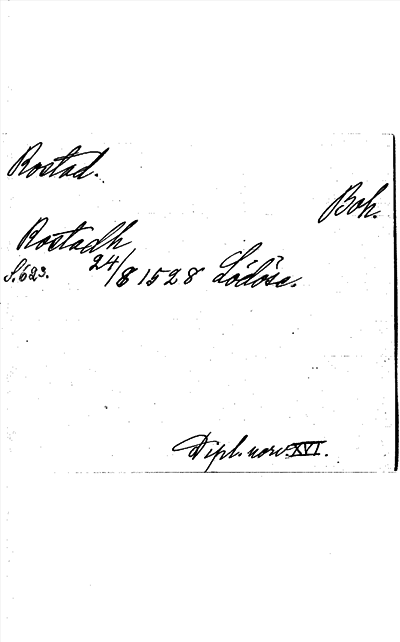 Rostad.
Boh.
Rostadh
S. 623. 24/8 1528 Lödöse.
Dipl. norv. XVI.